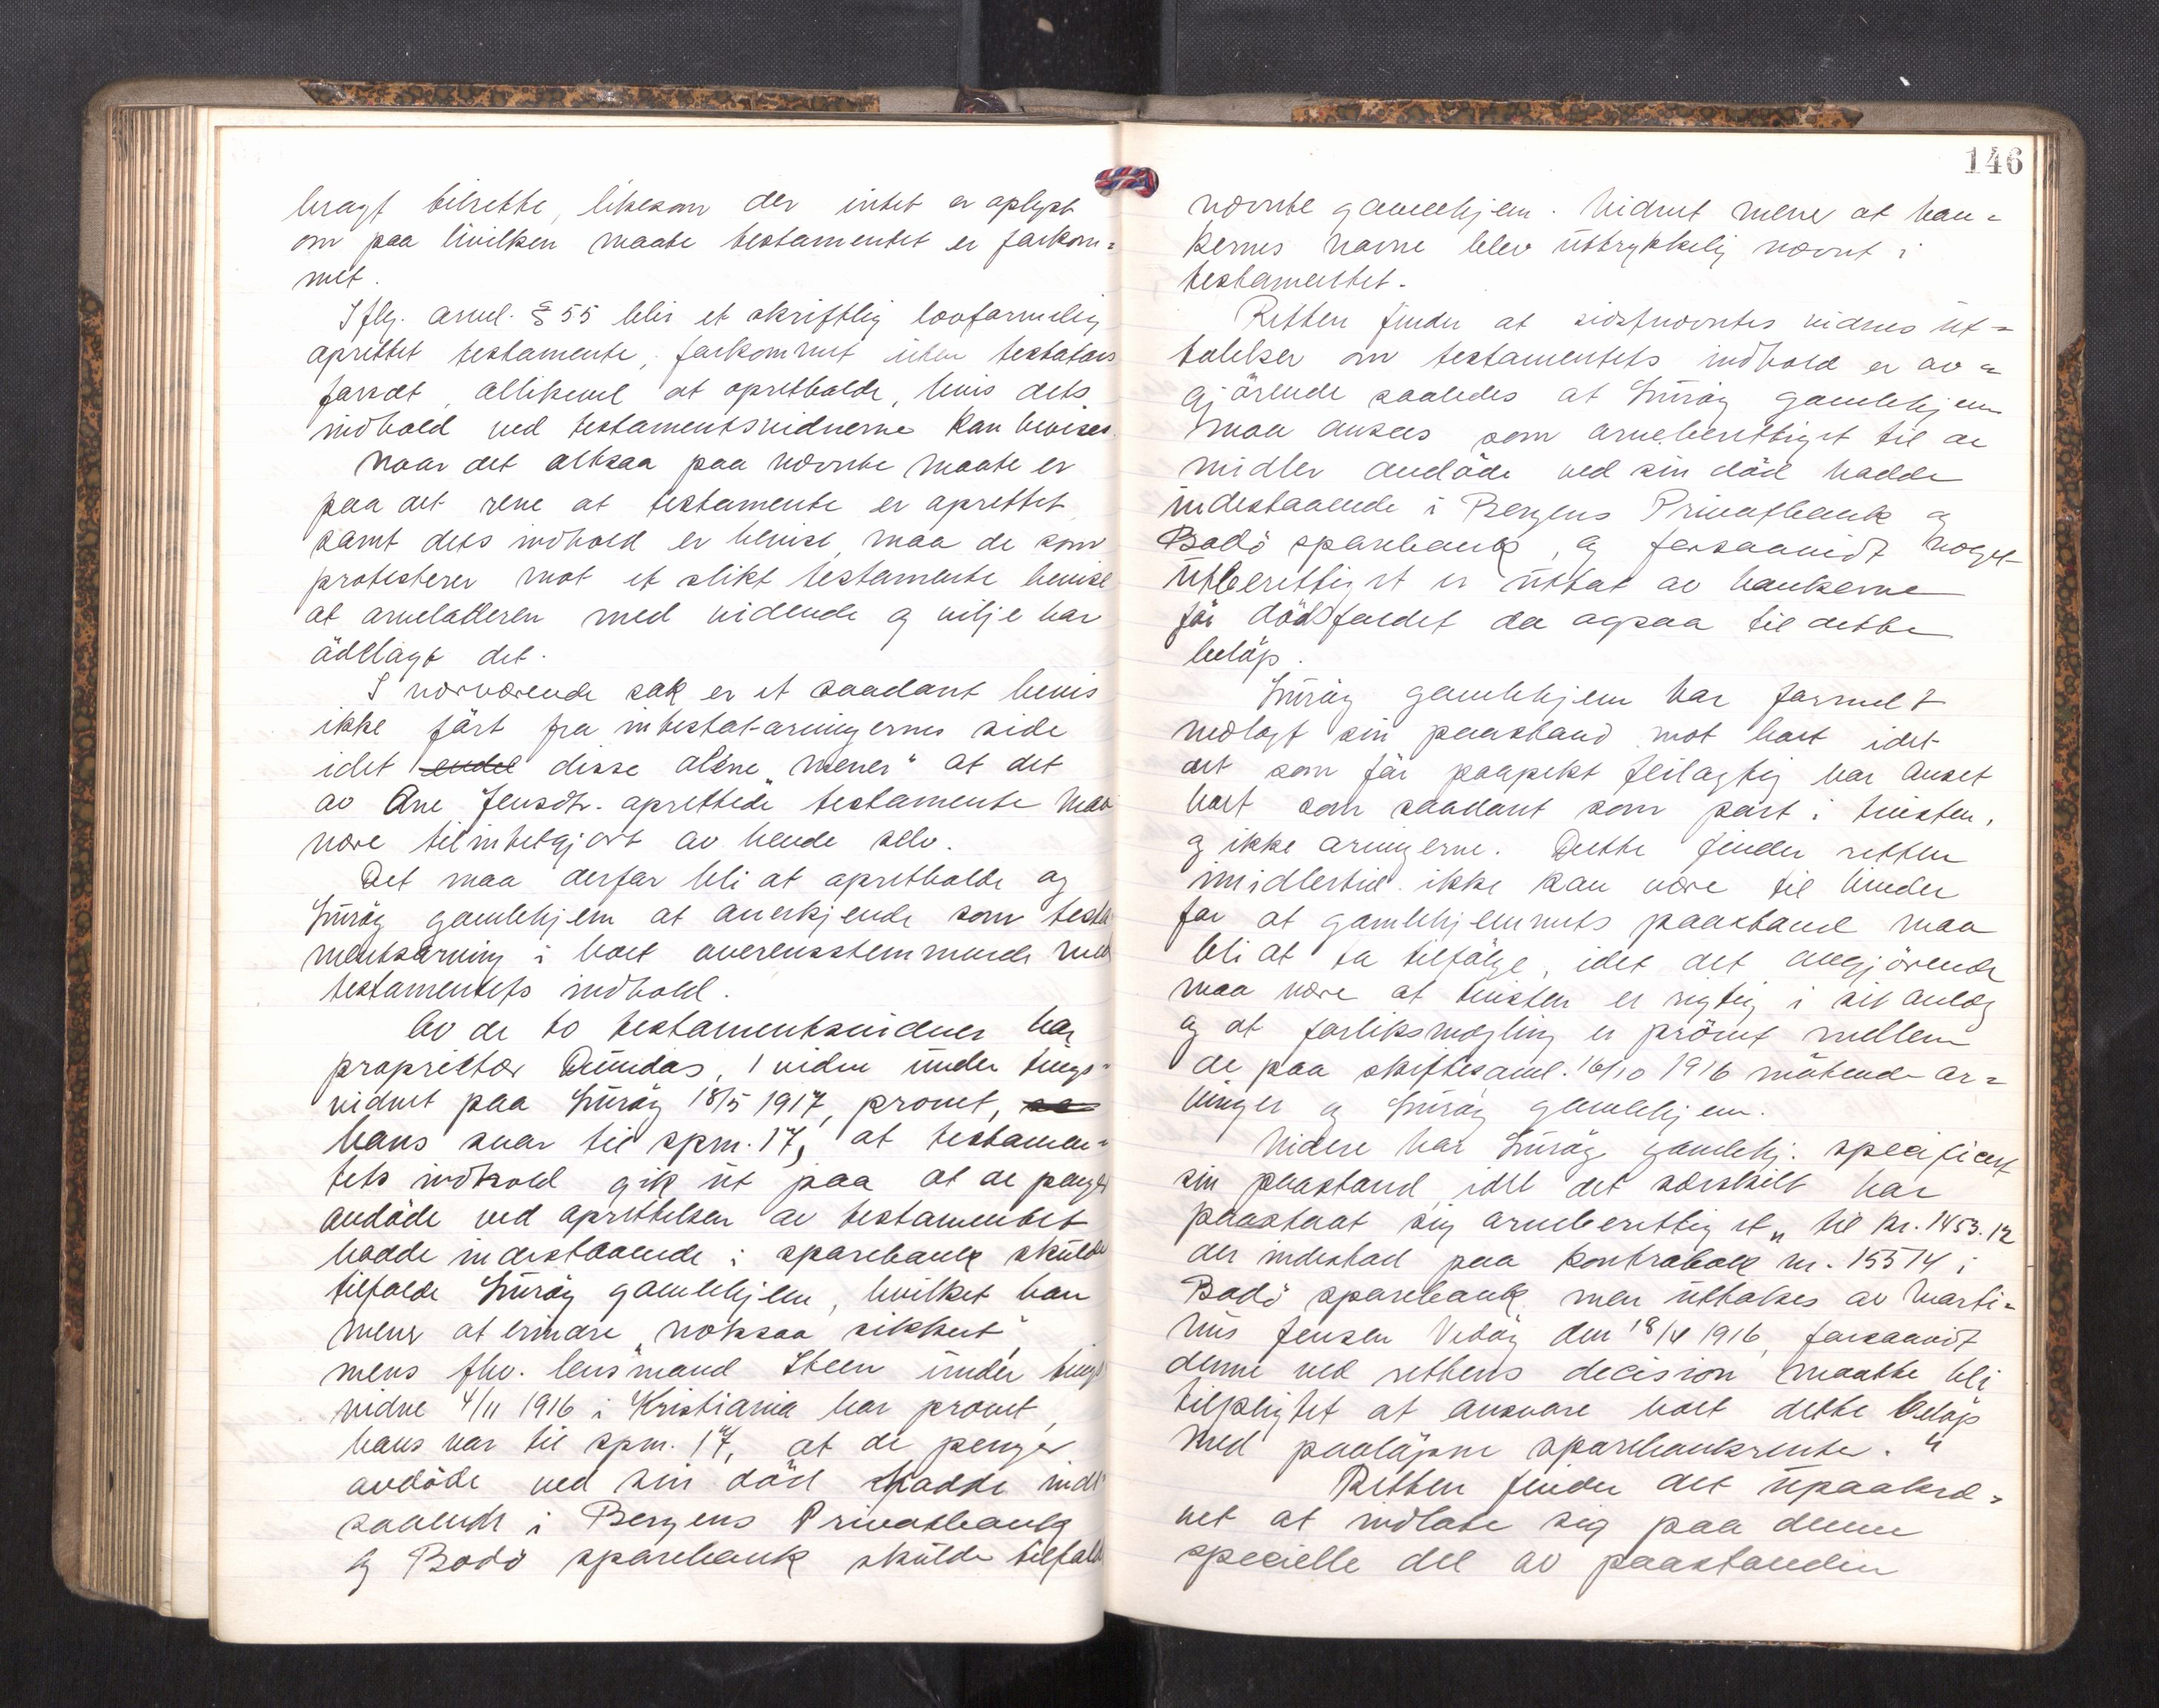 bragt tilrette, likesom der intet er oplyst
om paa hvilken maate testamentet er forkom=
met.
Iflg. arvel. § 55 blir et skriftlig lovformelig
oprettet testamente, forkommet uten testators
forsæt, allikevel at opretholde, hvis dets
indhold ved testamentsvidnerne kan bevises.
Naar det altsaa paa nævnte maate er
paa det rene at testamente er oprettet,
samt dets indhold er bevist, maa de som
protesterer mot et slikt testamente bevise
at arveladeren med vidende og vilje har
ödelagt det.
I nærværende sak er et saadant bevis
ikke fört fra intestat-arvingernes side
idet endel disse alene „mener" at det
av Ane Jensdtr. oprettede testamente maa
være tilintetgjort av hende selv.
Det maa derfor bli at opretholde og
Luröy gamlehjem at anerkjende som testa
mentsarving i boet overensstemmende med
testamentets indhold.
Av de to testamentsvidner har
proprietær Dundas, 1 vidne under tings-
vidnet paa Luröy 18/5 1917, provet,
hans svar til spm. 17, at testamen=
tets indhold gik ut paa at de penger
avdöde ved oprettelsen av testamentet
hadde indestaaende i sparebank skulde
tilfalde Luröy gamlehjem, hvilket han
mener at erindre „noksaa sikkert",
mens fhv. lensmand Steen under tings
vidne 4/11 1916 i Kristiania har provet,
hans svar til spm. 17, at de penger
avdöde ved sin död hadde inde
staaende i Bergens Privatbank
og Bodö sparebank skulde tilfalde
146
nævnte gamlehjem. Vidnet mener at ban=
kernes navne blev uttrykkelig nævnt i
testamentet.
Retten finder at sidstnævntes vidnes ut=
talelser om testamentets indhold er av=
gjörende saaledes at Luröy gamlehjem
maa ansees som arveberettiget til de
midler avdöde ved sin död hadde
indestaaende i Bergens Privatbank og
Bodö sparebank, og forsaavidt noget
uberettiget er uttat av bankerne
för dödsfaldet da ogsaa til dette
belöp.
Luröy gamlehjem har formelt
nedlagt sin paastand mot boet idet
det som för paapekt feilagtig har anset
boet som saadant som part i tvisten,
og ikke arvingerne. Dette finder retten
imidlertid ikke kan være til hinder
for at gamlehjemmets paastand maa
bli at ta tilfölge, idet det avgjörende
maa være at tvisten er rigtig i sit anlæg
og at forliksmægling er prövet mellem
de paa skiftesaml. 16/10 1916 mötende ar=
vinger og Luröy gamlehjem.
Videre har Luröy gamlehj. specificert
sin paastand, idet det særskilt har
paastaat sig arveberettiget „til kr. 1453.12
der indestod paa kontrabok nr. 15514 i
Bodö sparebank men uttokes av Marti=
nus Jensen Vedöy den 18/4 1916, forsaavidt
denne ved rettens decision maatte bli
tilpligtet at ansvare boet dette belöp
med paalöpne sparebankrente."
Retten finder det upaakræ=
vet at indlate sig paa denne
specielle del av paastanden